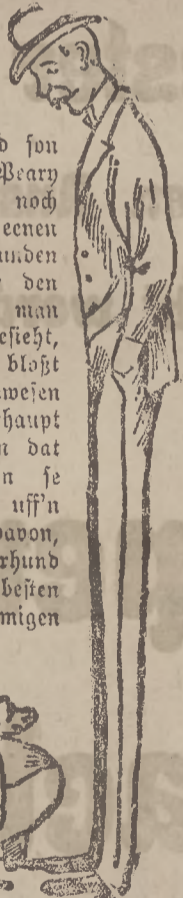 d son
Peary
noch
eenen
unden
den
man
esieht,
bloßt
wesen
haupt
n dat
n se
uff'n
davon,
rhund
besten
migen